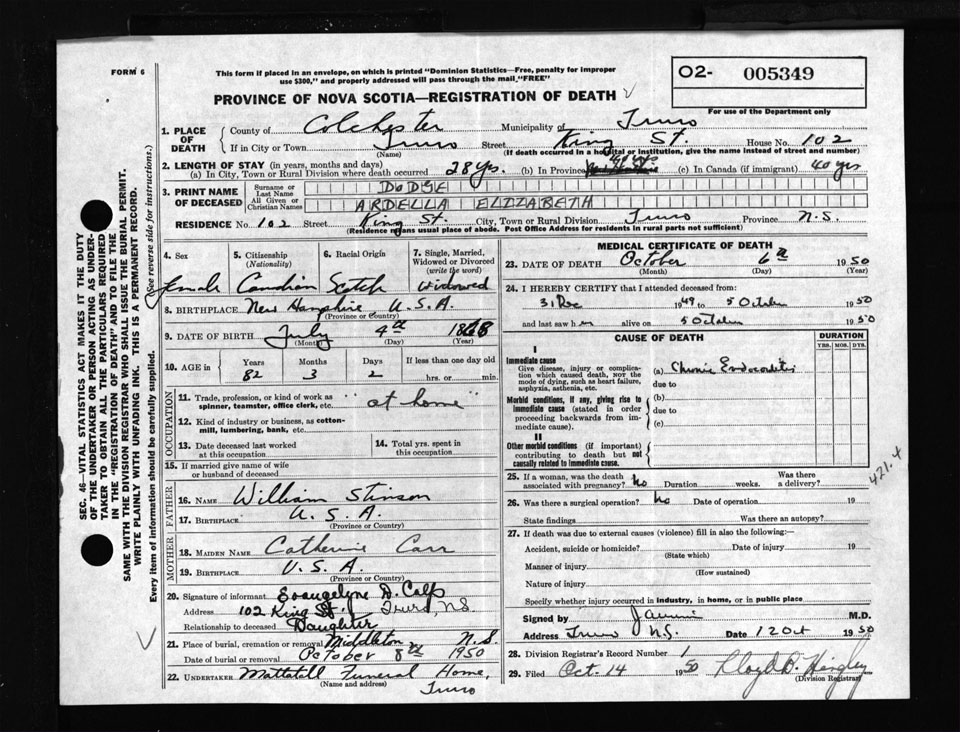 FORM 6
This form if placed in an envelope, on which is printed "Dominion Statistics—Free, penalty for improper
use $300," and properly addressed will pass through the mail, "FREE"
O2- 005349
For use of the Department only
PROVINCE OF NOVA SCOTIA—REGISTRATION OF DEATH
SEC. 46—VITAL STATISTICS ACT MAKES IT THE DUTY
OF THE UNDERTAKER OR PERSON ACTING AS UNDER-
TAKER TO OBTAIN ALL THE PARTICULARS REQUIRED
IN THE "REGISTRATION OF DEATH" AND TO FILE THE
SAME WITH THE DIVISION REGISTRAR WHO SHALL ISSUE THE BURIAL PERMIT.
WRITE PLAINLY WITH UNFADING INK. THIS IS A PERMANENT RECORD.
Every item of information should be carefully supplied. (See reverse side for instructions.)
1. PLACE OF DEATH
County of Colchester Municipality of Truro
If in City or Town Truro Street King St. House No. 102
(Name) (If death occurred in a hospital or institution, give the name instead of street and number)
2. LENGTH OF STAY (in years, months and days)
(a) In City, Town or Rural Division where death occurred 28 yrs. (b) In Province 40 yrs (c) In Canada (if immigrant) 40 yrs
3. PRINT NAME OF DECEASED
Surname or Last Name DODGE
All Given or Christian Names ARDELLA ELIZABETH
RESIDENCE No. 102 Street King St. City, Town or Rural Division Truro Province N.S.
(Residence means usual place of abode. Post Office Address for residents in rural parts not sufficient)
4. Sex 5. Citizenship (Nationality) 6. Racial Origin 7. Single, Married, Widowed or Divorced (write the word)
Female Canadian Scotch widowed
8. BIRTHPLACE New Hampshire U.S.A.
(Province or Country)
9. DATE OF BIRTH July 4th 1868
(Month) (Day) (Year)
10. AGE in Years Months Days If less than one day old
82 3 2 hrs. or min.
OCCUPATION
11. Trade, profession, or kind of work as
spinner, teamster, office clerk, etc. "at home"
12. Kind of industry or business, as cotton-
mill, lumbering, bank, etc.
13. Date deceased last worked
at this occupation
14. Total yrs. spent in
this occupation
15. If married give name of wife
or husband of deceased
FATHER
16. NAME William Stinson
17. BIRTHPLACE U.S.A.
(Province or Country)
MOTHER
18. MAIDEN NAME Catherine Carr
19. BIRTHPLACE U.S.A.
(Province or Country)
20. Signature of informant Evangelyne D. Calp
Address 102 King St. Truro, N.S.
Relationship to deceased Daughter
21. Place of burial, cremation or removal Middleton N.S.
Date of burial or removal October 8th 1950
22. UNDERTAKER Mattatall Funeral Home,
(Name and address) Truro
MEDICAL CERTIFICATE OF DEATH
23. DATE OF DEATH October 6th 1950
(Month) (Day) (Year)
24. I HEREBY CERTIFY that I attended deceased from:
31 Dec 1949 to 5 October 1950
and last saw her alive on 5 October 1950
CAUSE OF DEATH DURATION
YRS. MOS. DYS.
I
Immediate cause
Give disease, injury or complica-
tion which caused death, NOT the
mode of dying, such as heart failure,
asphyxia, asthenia, etc.
(a) Chronic Endocarditis
due to
Morbid conditions, if any, giving rise to
immediate cause (stated in order
proceeding backwards from im-
mediate cause).
(b)
due to
(c)
II
Other morbid conditions (if important)
contributing to death but not
causally related to immediate cause.
421.4
25. If a woman, was the death
associated with pregnancy? No Duration weeks. Was there
a delivery?
26. Was there a surgical operation? No Date of operation 19
State findings Was there an autopsy?
27. If death was due to external causes (violence) fill in also the following:—
Accident, suicide or homicide? Date of injury 19
(State which)
Manner of injury
(How sustained)
Nature of injury
Specify whether injury occurred in industry, in home, or in public place
Signed by M.D.
Address Truro N.S. Date 12 Oct 1950
28. Division Registrar's Record Number 1
29. Filed Oct. 14 1950 Lloyd B. Hingley
(Division Registrar)